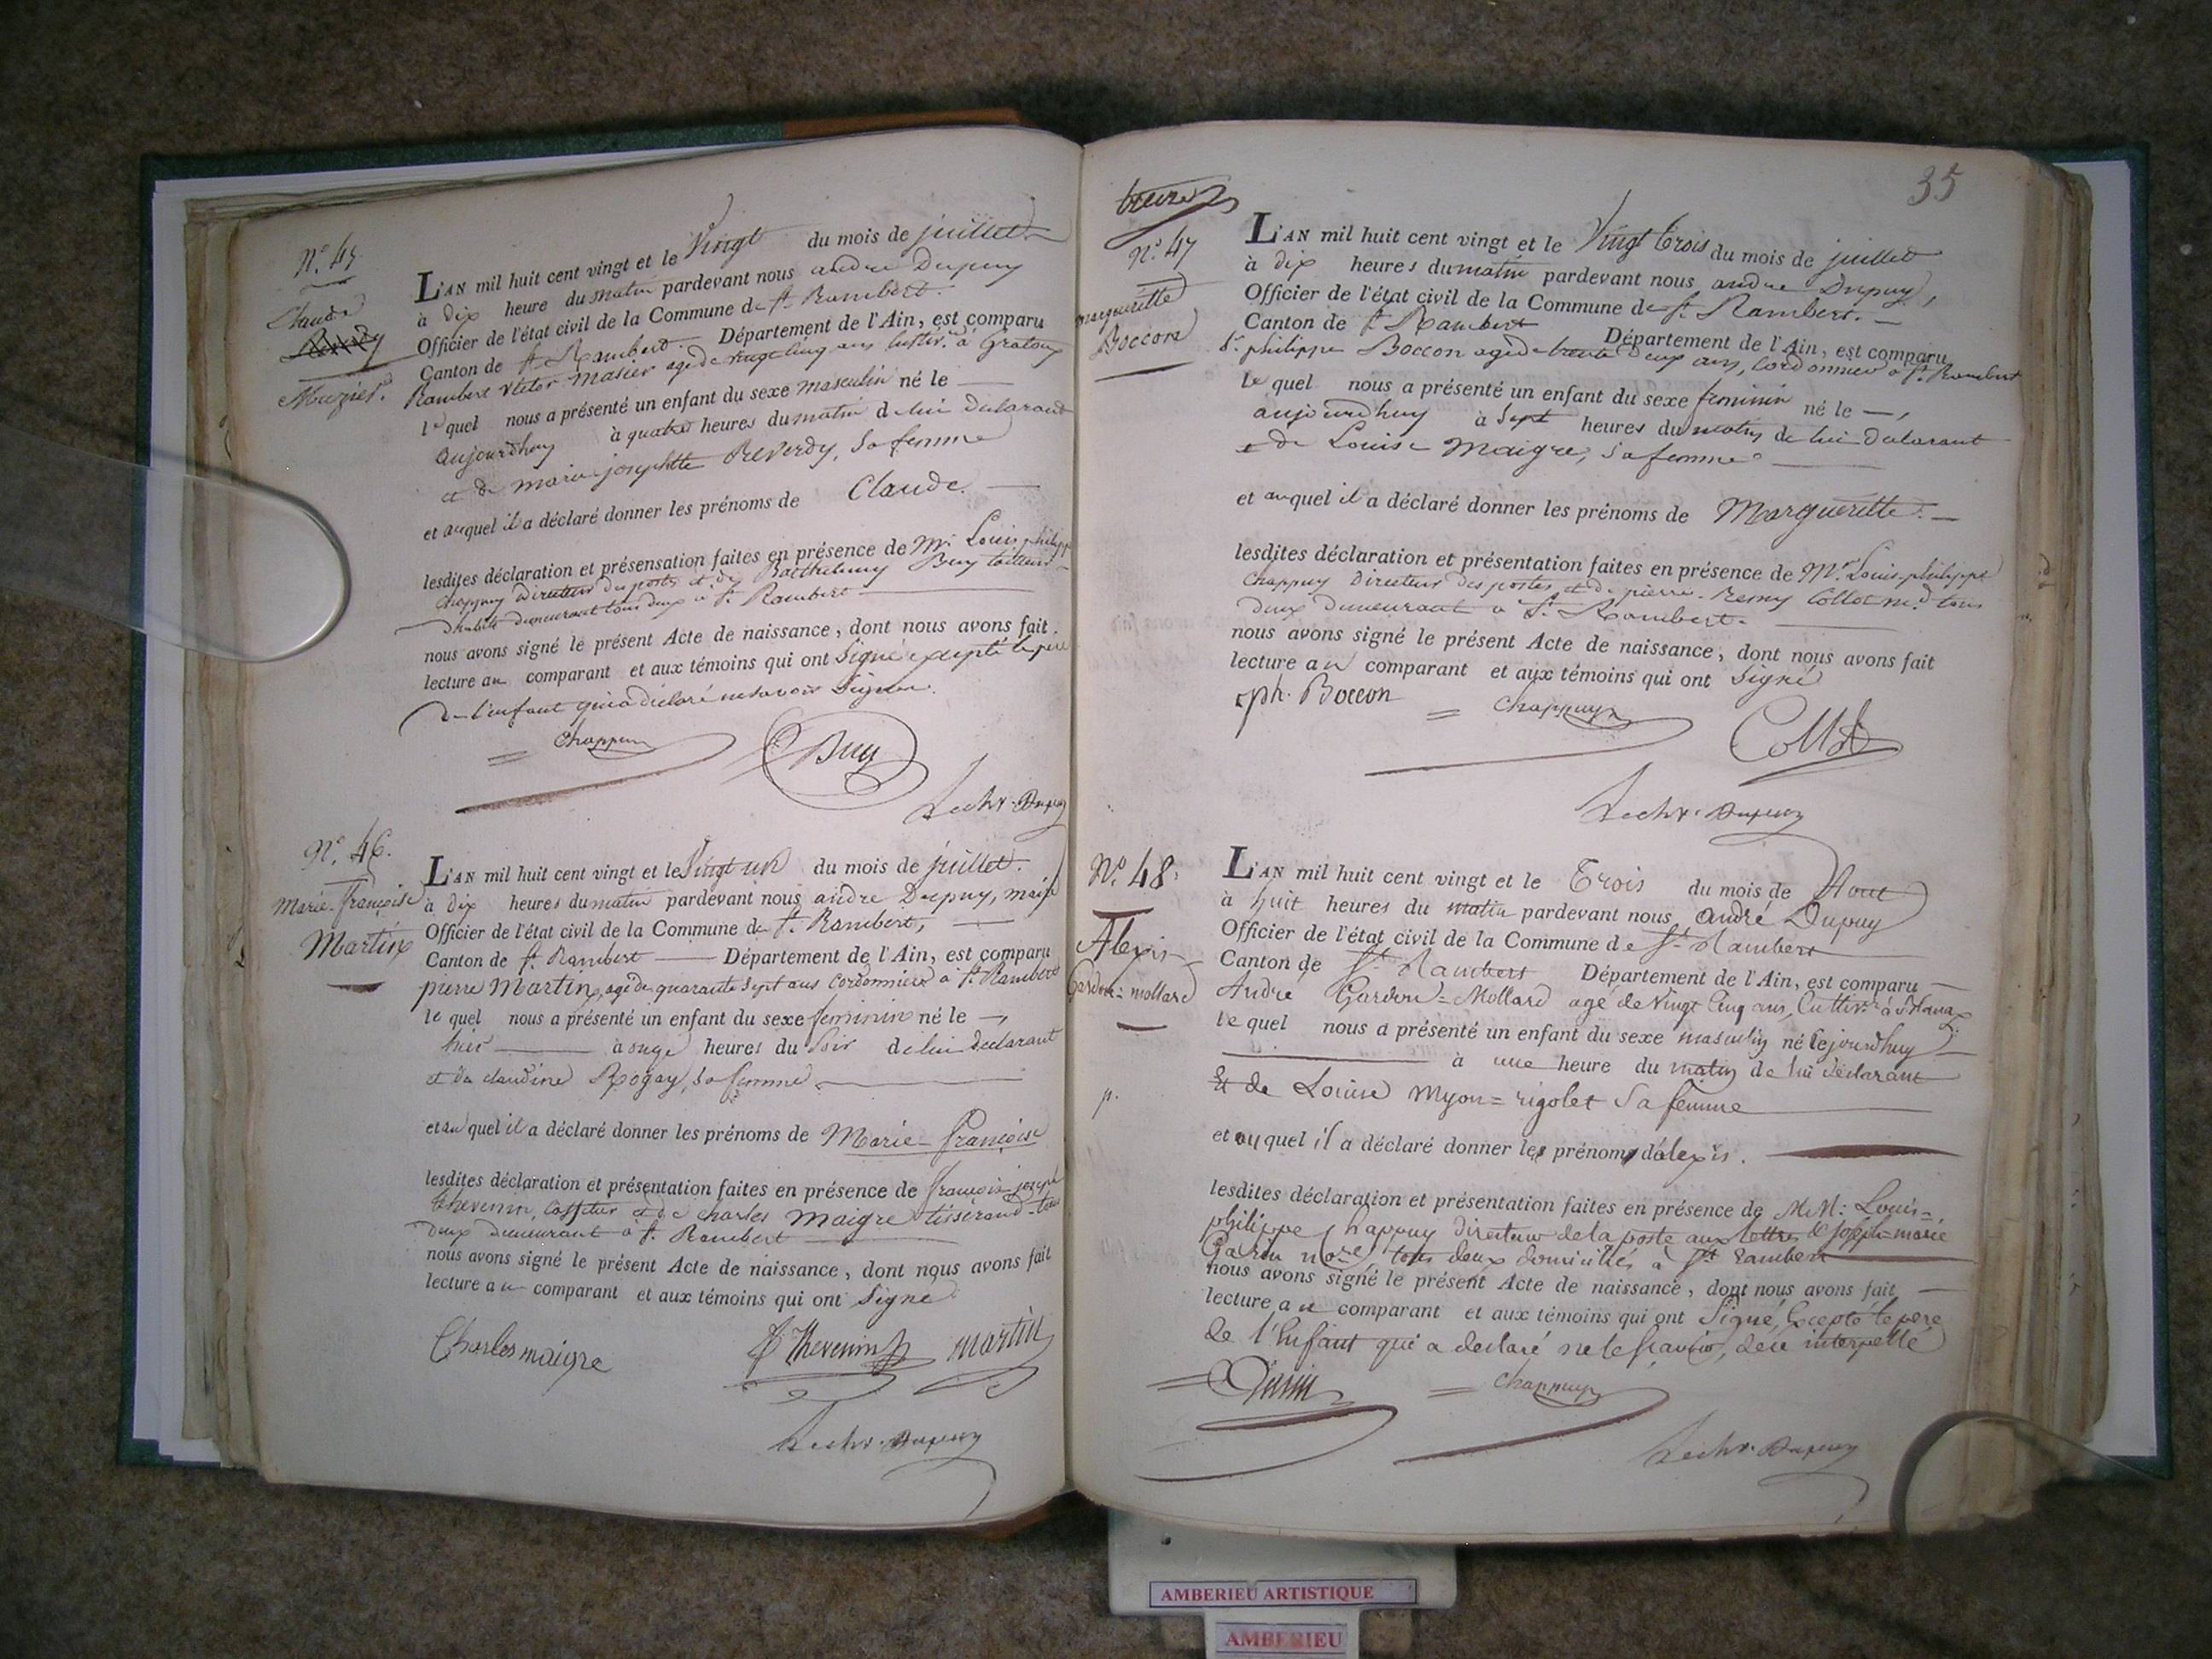 N.º 45
Claude
Mazier.
L'AN mil huit cent vingt et le Vingt du mois de juillet
à dix heure du matin pardevant nous andre Dupuy
Officier de l'état civil de la Commune de St. Rambert.
Canton de St. Rambert. Département de l'Ain, est comparu
Rambert Victor Masier agé de vingt cinq ans cultiv.r à Gratoux
le quel nous a présenté un enfant du sexe masculin né le
aujourdhuy à quatre heures du matin de lui declarant
et de marie josephtte Reverdy, sa femme
et auquel il a déclaré donner les prénoms de Claude.
lesdites déclaration et présensation faites en présence de Mr. Louis philippe
Chappuy Directeur des postes et de Barthelemy Buy tailleur
d'habits demeurant tous deux a St. Rambert
nous avons signé le présent Acte de naissance, dont nous avons fait
lecture au comparant et aux témoins qui ont Signé excepté le pere
de l'enfant qui a déclaré ne savoir Signer.
Chappuy Buy
Dupuy
N.º 46.
Marie-françoise
Martin
L'AN mil huit cent vingt et le Vingt un du mois de juillet.
à dix heures du matin pardevant nous andre Dupuy, maire
Officier de l'état civil de la Commune de St. Rambert,
Canton de St. Rambert Département de l'Ain, est comparu
pierre Martin, agé de quarante sept ans Cordonnier à St. Rambert
le quel nous a présenté un enfant du sexe feminin né le
hier à onze heures du Soir de lui declarant
et de claudine Rogay, sa femme.
et au quel il a déclaré donner les prénoms de Marie-françoise
lesdites déclaration et présentation faites en présence de françois-joseph
thevenin, et de charles Maigre tisserand tous
deux demeurant à St. Rambert
nous avons signé le présent Acte de naissance, dont nous avons fait
lecture au comparant et aux témoins qui ont Signé
Charles maigre Thevenin martin
Dupuy
35
N.º 47
margueritte
Boccon
L'AN mil huit cent vingt et le Vingt trois du mois de juillet
à dix heures du matin pardevant nous andre Dupuy,
Officier de l'état civil de la Commune de St. Rambert.
Canton de St. Rambert Département de l'Ain, est comparu
Sr. philippe Boccon agé de trente deux ans, Cordonnier à St. Rambert
le quel nous a présenté un enfant du sexe feminin né le
aujourdhuy à Sept heures du matin de lui declarant
et de Louise Maigre, sa femme
et auquel il a déclaré donner les prénoms de Margueritte.
lesdites déclaration et présentation faites en présence de Mr. Louis-philippe
Chappuy Directeur des postes, et de pierre-Remy Collot m.d tous
deux demeurant à St. Rambert.
nous avons signé le présent Acte de naissance, dont nous avons fait
lecture au comparant et aux témoins qui ont Signé
ph. Boccon Chappuy Collot
Dupuy
N.º 48.
Alexis
Gardon=mollard
L'AN mil huit cent vingt et le Trois du mois de Aout
à huit heures du matin pardevant nous, André Dupuy
Officier de l'état civil de la Commune de St. Rambert
Canton de St. Rambert Département de l'Ain, est comparu
André Gardon=Mollard agé de vingt Cinq ans, Cultiv.r à
le quel nous a présenté un enfant du sexe masculin né Cejourdhuy
à une heure du matin de lui déclarant
Et de Louise Myon=rigolet Sa femme
p.
et auquel il a déclaré donner les prénoms d'alexis.
lesdites déclaration et présentation faites en présence de MM: Louis=
philippe Chappuy directeur de la poste aux lettres & Joseph=marie
Garin nore, tous deux domiciliés à St. Rambert
nous avons signé le présent Acte de naissance, dont nous avons fait
lecture au comparant et aux témoins qui ont Signé, Excepté le pere
de l'Enfant qui a declaré ne le sçavoir, de ce interpellé
Garin Chappuy
Dupuy
AMBERIEU ARTISTIQUE
AMBERIEU